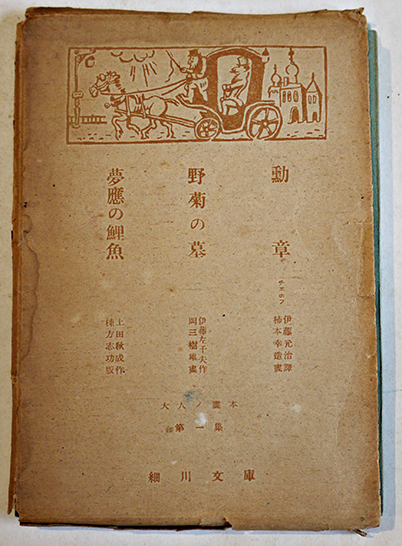 勳章
チエホフ
伊藤元治譯
柿本幸造畫
野菊の墓
伊藤左千夫作
夢應の鯉魚
上田秋成作
棟方志功版
大人ノ畫本
第一集
細川文庫